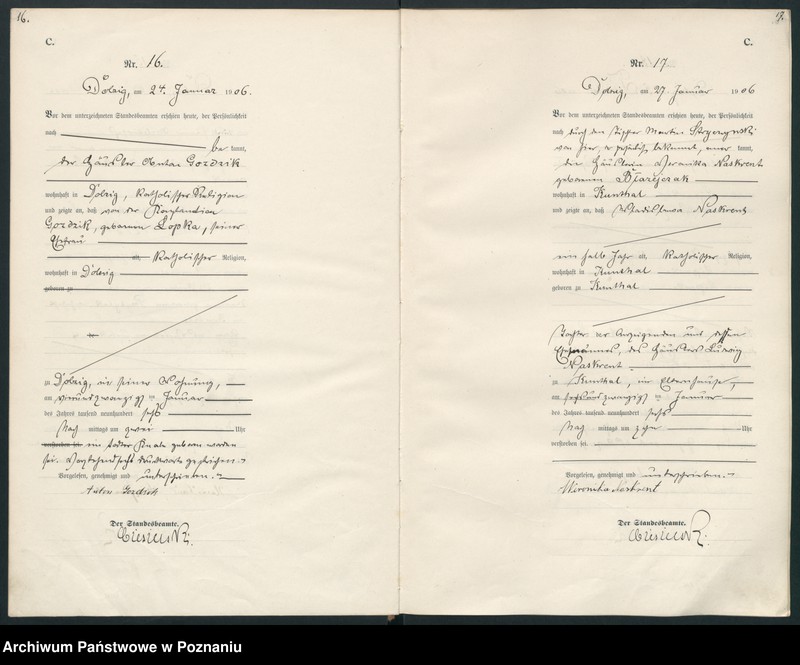 16.
C.
Nr. 16.
Dolzig, am 24. Januar 1906.
Vor dem unterzeichneten Standesbeamten erschien heute, der Persönlichkeit
nach
be kannt,
der Häusler Anton Gozdzik
wohnhaft in Dolzig, katholischer Religion
und zeigte an, daß von der
Gozdzik, geborenen Lopka, seiner
Ehefrau
alt, katholischer Religion,
wohnhaft in Dolzig
geboren zu
zu Dolzig, in seiner Wohnung,
am vierundzwanzigsten Januar
des Jahres tausend neunhundert sechs
Nach mittags um zwei Uhr
verstorben sei. ein todter Knabe geboren worden
sei. Druckworte gestrichen.
Vorgelesen, genehmigt und unterschrieben.
Anton Gozdzik
Der Standesbeamte.
17.
C.
Nr. 17
Dolzig, am 27. Januar 1906
Vor dem unterzeichneten Standesbeamten erschien heute, der Persönlichkeit
nach durch den Martin
von hier, bekannt, kannt,
die Häuslerin Veronika Naskrent
geborenen
wohnhaft in Kunthal
und zeigte an, daß Wladislawa Naskrent
ein halb Jahr alt, katholischer Religion,
wohnhaft in Kunthal
geboren zu Kunthal
Tochter der Anzeigenden und dessen
Ehemannes, des Häuslers Ludwig
Naskrent
zu Kunthal, im Elternhause,
am sechsundzwanzigsten Januar
des Jahres tausend neunhundert sechs
Nach mittags um zehn Uhr
verstorben sei.
Vorgelesen, genehmigt und unterschrieben.
Wironika Naskrent
Der Standesbeamte.
Archiwum Państwowe w Poznaniu